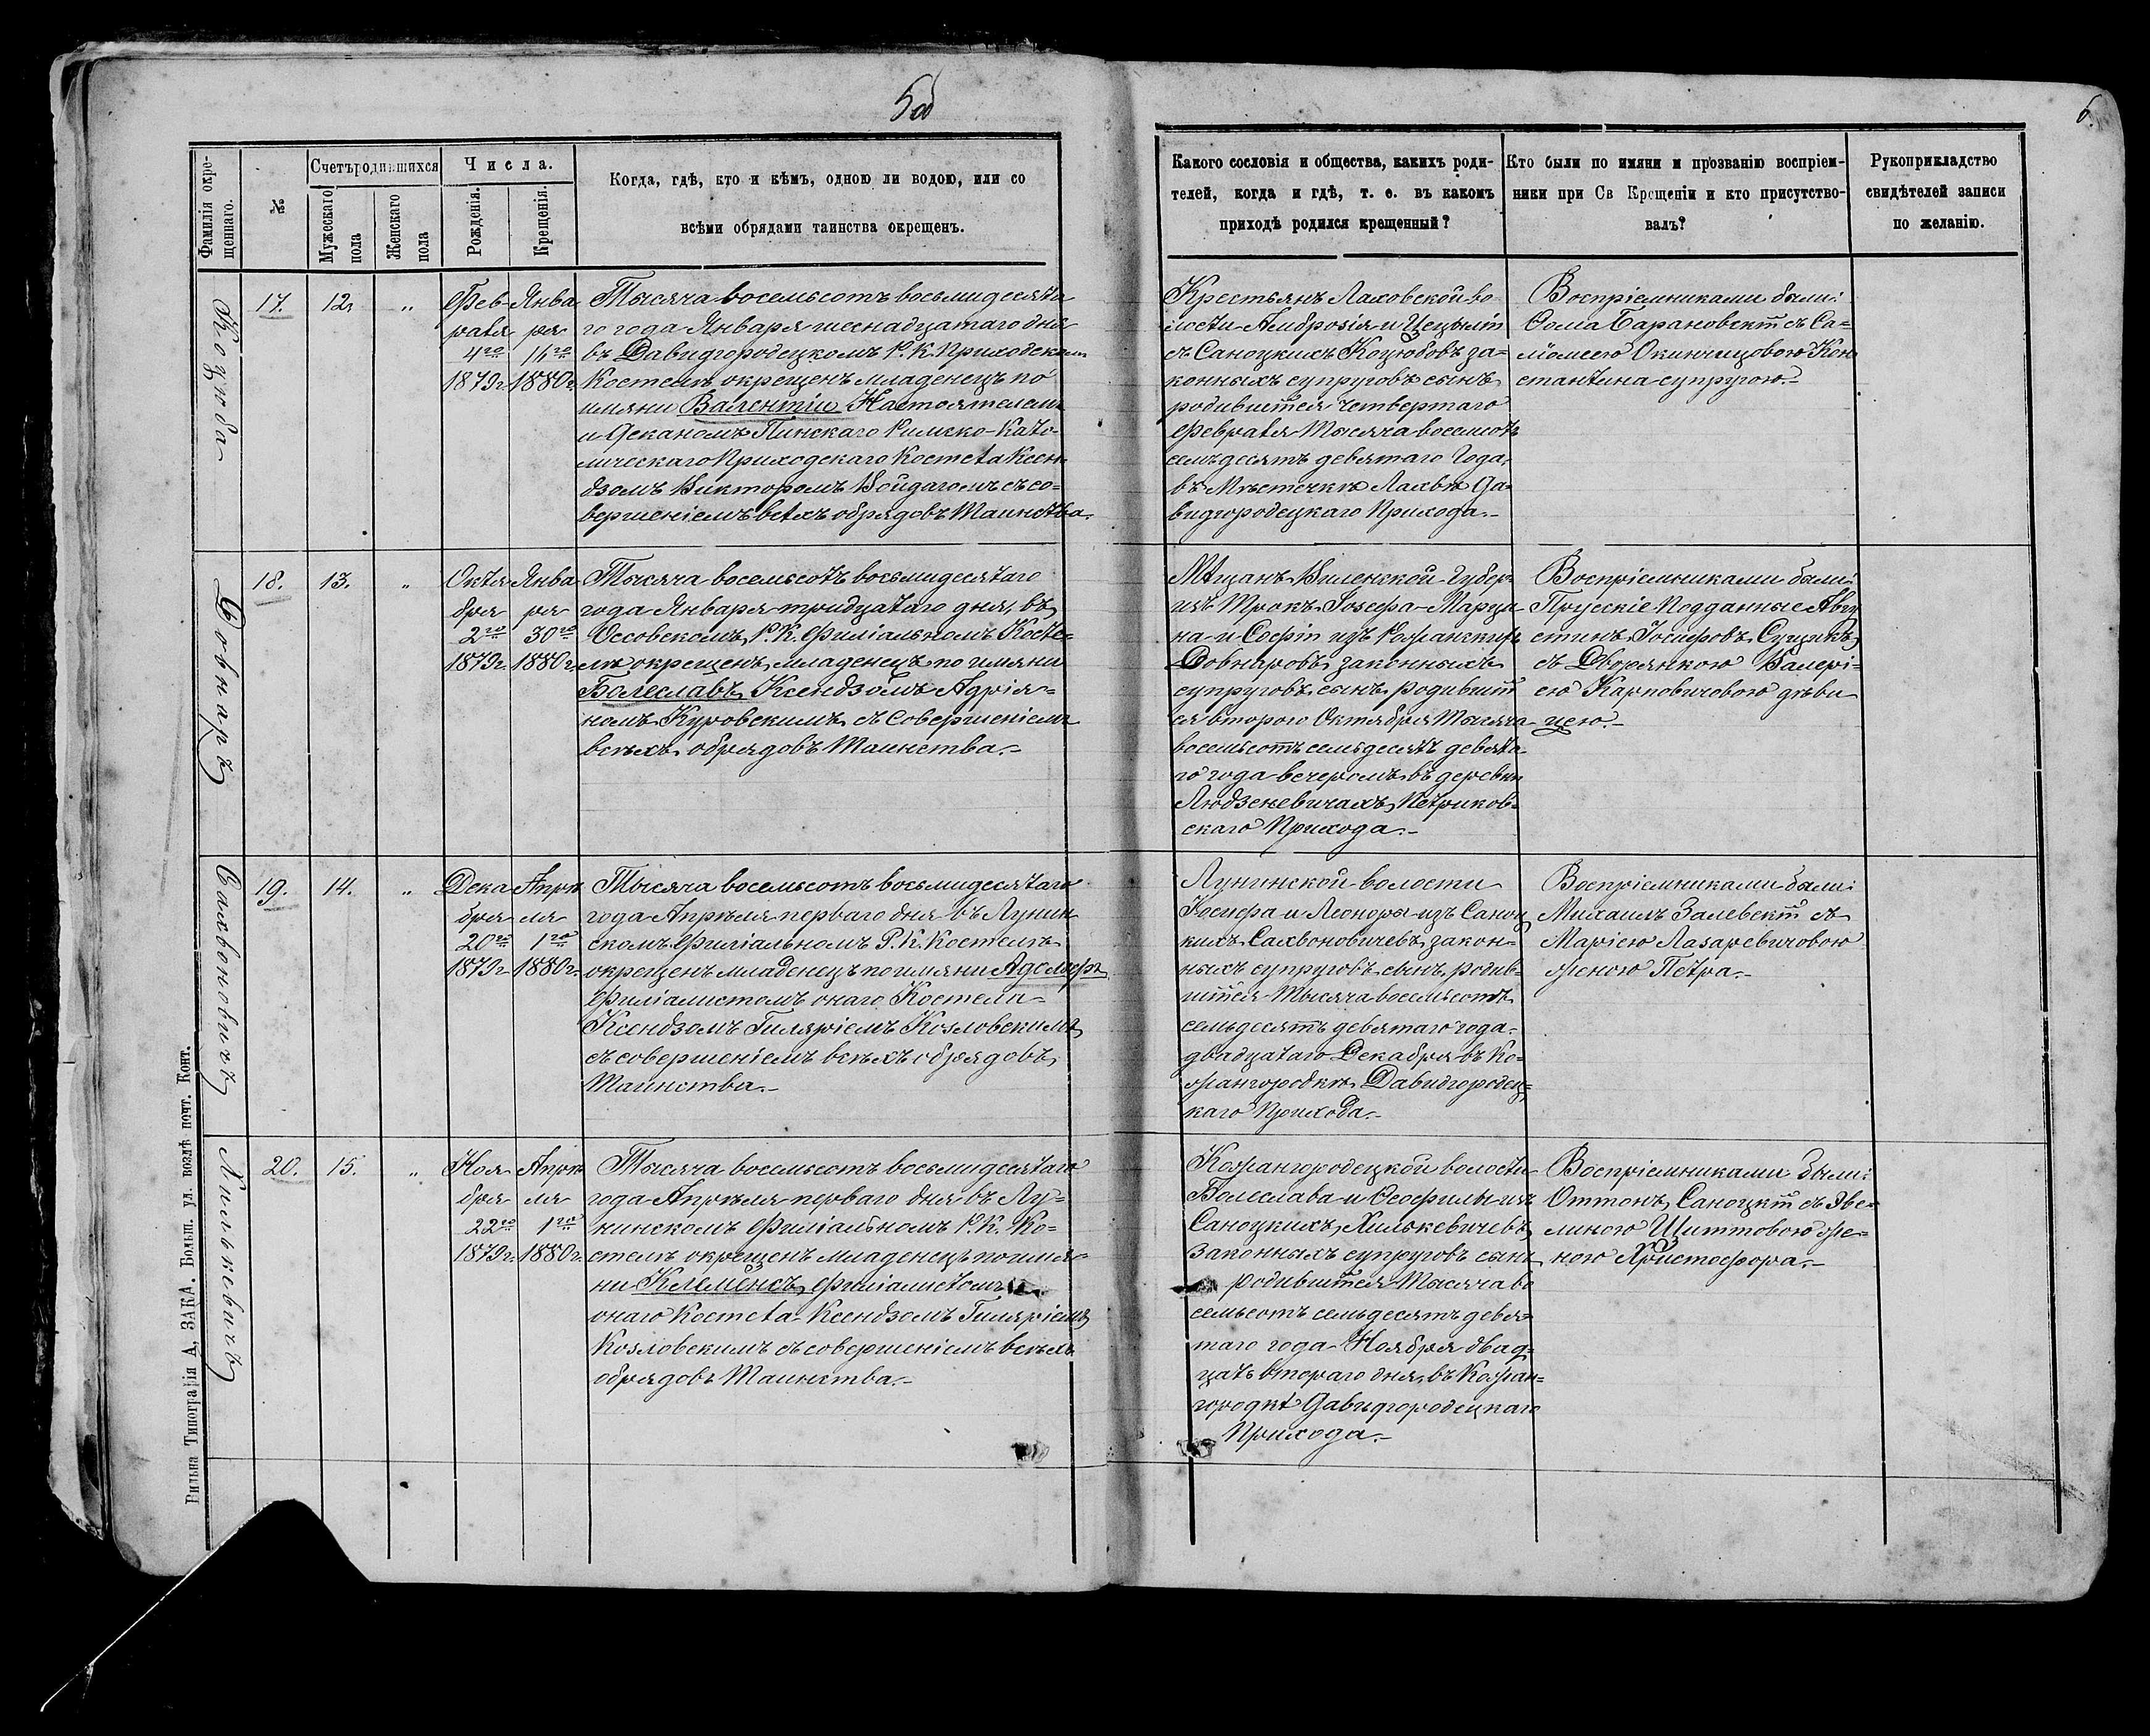 5об
6.
Фамилія окре-
щеннаго.
№
Счетъ родившихся
Мужескаго
пола
Женскаго
пола
Числа.
Рожденія.
Крещенія.
Когда, гдѣ, кто и кѣмъ, одною ли водою, или со
всѣми обрядами таинства окрещенъ.
Какого сословія и общества, какихъ роди-
телей, когда и гдѣ, т. е. въ какомъ
приходѣ родился крещенный?
Кто были по имяни и прозванію воспріем-
ники при Св Крещеніи и кто присутство-
валъ?
Рукоприкладство
свидѣтелей записи
по желанію.
Коцюба
17.
12
"
Фев-
раля
4го
1879г.
Янва
ря
16го
1880г.
Тысяча восемьсотъ восьмидесята
го года Января шеснадцатаго дня
въ Давидгородецкомъ Р. К. Приходскомъ
Костелѣ окрещенъ младенецъ по
имяни Валентіи Настоятелемъ
и Деканомъ Пинскаго Римско-Като-
лическаго Приходскаго Костела Ксен-
дзомъ Викторомъ Войдагомъ съ со-
вершеніемъ всѣхъ обрядовъ Таинства.
Крестьянъ Лаховской во
лости Амброзія и Цецыліи
съ Саноцкихъ Коцюбовъ за-
конныхъ супруговъ сынъ
родившійся четвертаго
Февраля тысяча восемсотъ
семьдесятъ девятаго Года,
въ Мѣстечкѣ Лахвѣ Да-
видгородецкаго Прихода.-
Воспріемниками были:
Ѳома Барановскій съ Са-
ломеею Окинчицовою Кон
стантина супругою.-
Довнаръ
18.
13.
"
Октя
бря
2го
1879г.
Янва
ря
30го
1880г.
Тысяча восемьсотъ восьмидесятаго
года Января тридцатаго дня, въ
Оссовскомъ Р. К. Филіальномъ Косте-
лѣ окрещенъ младенецъ по имяни
Болеславъ Ксендзомъ Адрія-
номъ Куровскимъ съ совершеніемъ
всѣхъ обрядовъ Таинства.-
Мѣщанъ Виленской Губер.
изъ Трокъ Іозефа-Марца-
на и Софіи изъ
Довнаровъ законныхъ
супруговъ сынъ родившій
ся второго Октября Тысяча
восемьсотъ семьдесятъ девята-
го года вечеромъ въ деревни
Людзеневичахъ Петриков-
скаго Прихода.-
Воспріемниками были:
Прусскіе Подданные Авгу
стинъ Іосифовъ
съ Дворянкою Валері-
ею Карповичовою дѣви
цею.-
Сахвоновичъ
19.
14.
"
Дека
бря
20го
1879г.
Апрѣ
ля
1го
1880г.
Тысяча восемьсотъ восьмидесятаго
года Апрѣля перваго дня въ Лунин
скомъ Филіальномъ Р. К. Костелѣ
окрещенъ младенецъ по имяни Адольфъ
Филіалистомъ онаго Костела
Ксендзомъ Гиляріемъ Козловскимъ,
съ совершеніемъ всѣхъ обрядовъ
Таинства.-
Лунинской волости
Іосифа и Леоноры изъ Саноц
кихъ Сахвоновичевъ закон-
ныхъ супруговъ сынъ, родив-
шійся Тысяча восемьсотъ
семьдесятъ девятаго года
двадцатаго Декабря въ Ко-
жангородкѣ Давидгородец-
каго Прихода.-
Воспріемниками были:
Михаилъ Залевскій съ
Маріею Лазаревичовою
женою Петра.-
Хилькевичъ
20.
15.
"
Ноя
бря
22го
1879г.
Апрѣ
ля
1го
1880г.
Тысяча восемьсотъ восьмидесятаго
года Апрѣля перваго дня въ Лу-
нинскомъ Филіальномъ Р. К. Ко-
стелѣ окрещенъ младенецъ по имя-
ни Клеменсъ, Филіалистомъ
онаго Костела Ксендзомъ Гиляріемъ
Козловскимъ съ совершеніемъ всѣхъ
обрядовъ Таинства.-
Кожангородецкой волости
Болеслава и Ѳеофилы изъ
Саноцкихъ Хилькевичевъ
законныхъ супруговъ сынъ
родившійся Тысяча во
семьсотъ семьдесятъ девя-
таго года Ноября двад-
цать втораго дня въ Кожан-
городкѣ Давидгородецкаго
Прихода.-
Воспріемниками были:
Оттонъ Саноцкій съ Эве-
линою Шиттовою же-
ною Христофора.-
Вильна Типографія А. ЗАКА. Больш. ул. возлѣ почт. Конт.